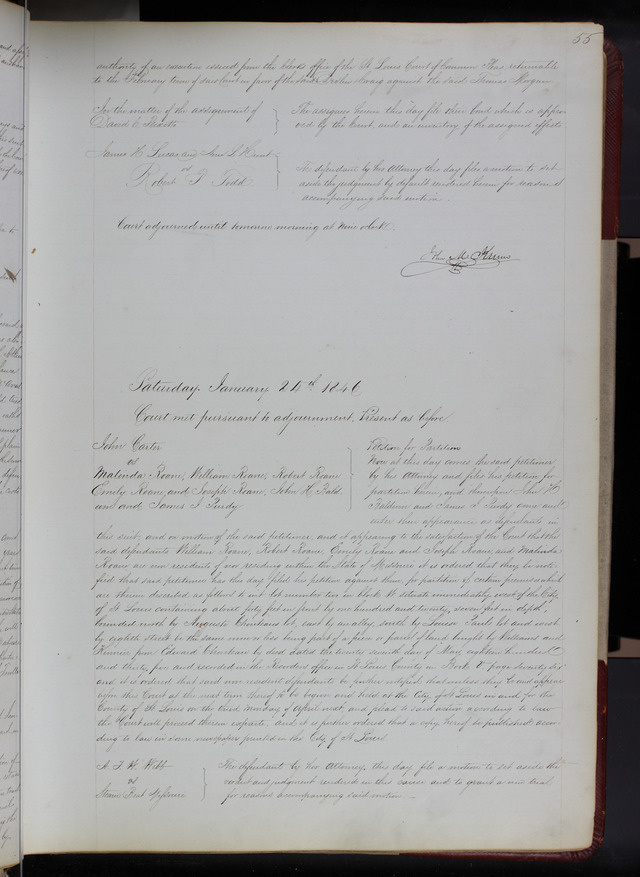 55
authority of an execution issued from the Clerks office of the St Louis Court of Common Pleas returnable
to the February term of said Court in favor of the said John Craig against the said Thomas Hogan
In the matter of the assignment of
David E.
The assignee herein this day file their bond which is appro-
ved by the Court, and an inventory of the assigned effects
James H Lucas and Ann L Hunt
vs
Robert P Todd
The defendant by his Attorney this day files a motion to set
aside the judgment by default rendered herein for reasons
accompanying said motion.
Court adjourned until tomorrow morning at nine oclock.
Jno M Krum
Saturday January 24th 1846
Court met pursuant to adjournment. Present as before
John Carter
vs
Malinda Roane, William Roane, Robert Roane
Emily Roane, and Joseph Roane, John H Bald-
and James T Purdy
Petition for Partition
Now at this day comes the said petitioner
by his Attorney and files his petition for
partition herein, and thereupon John H
Baldwin and James T Purdy come and
enter their appearance as defendants in
this suit, and on motion of the said petitioner and it appearing to the satisfaction of the Court that the
said defendants William Roane, Robert Roane Emily Roane and Joseph Roane, and Malinda
Roane are non residents of nor residing within the State of Missouri it is ordered that they be noti-
fied that said petitioner has this day filed his petition against them for partition of certain premises which
are therein described as follows to wit lot number two in block situate immediately west of the City
of St Louis containing about fifty feet in front by one hundred and twenty seven feet in depth,
bounded north by Auguste Chouteaus lot, east by an alley, south by Louson Paul lot and west
by eighth street the same more or less being part of a piece or parcel of land bought by Williams and
from Edward Chouteau by deed dated the twenty seventh day of May eighteen hundred
and thirty five and recorded in the Recorders office in St Louis County in Book U page twenty six
and it is ordered that said non resident defendants be further notified that unless they be and appear
before this Court at the next term thereof to be begun and held at the City of St Louis in and for the
County of St Louis on the third Monday of April next and plead to said action according to law
the Court will proceed therein exparte, and it is further ordered that a copy hereof be published accor-
ding to law in some newspaper printed in the City of St Louis.
vs
Steam Boat Missouri
The defendants by her Attorney this day file a motion to set aside the
and judgment rendered in this cause and to grant a new trial
for reasons accompanying said motion